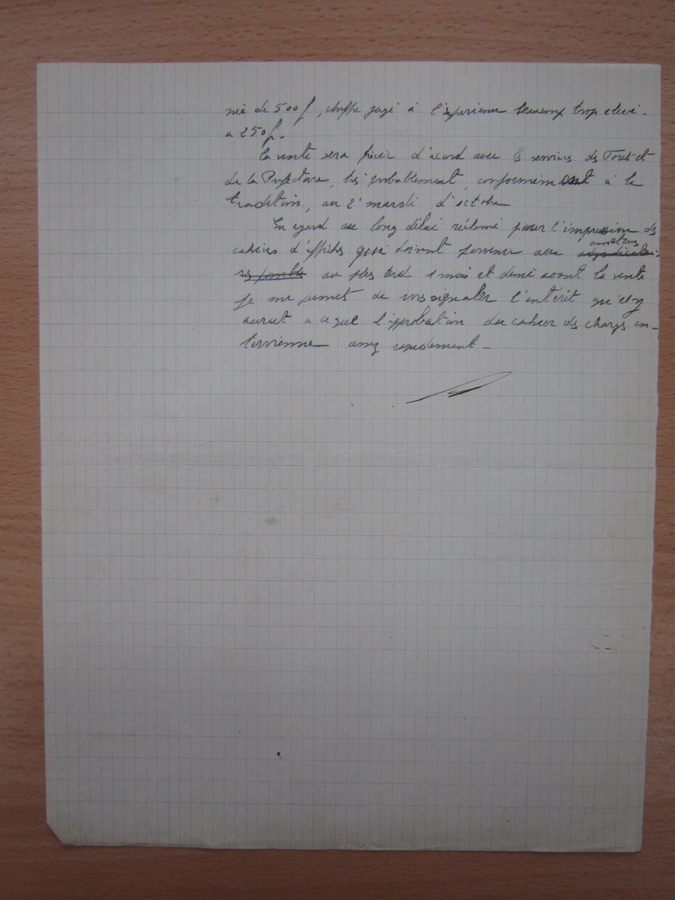 né de 500f, chiffre jugé à l'expérience beaucoup trop élevé
à 250f.
La vente sera fixée d'accord avec les services des Forêts et
de la Préfecture, très probablement, conformément à la
tradition, au 2e mardi d'octobre
En égard au long délai réclamé pour l'impression des
cahiers d'affiches qui doivent parvenir aux amateurs
au plus tard 1 mois et demi avant la vente
je me permets de vous signaler l'intérêt qu'il y
aurait à ce que l'approbation du cahier des charges in-
tervienne assez rapidement -